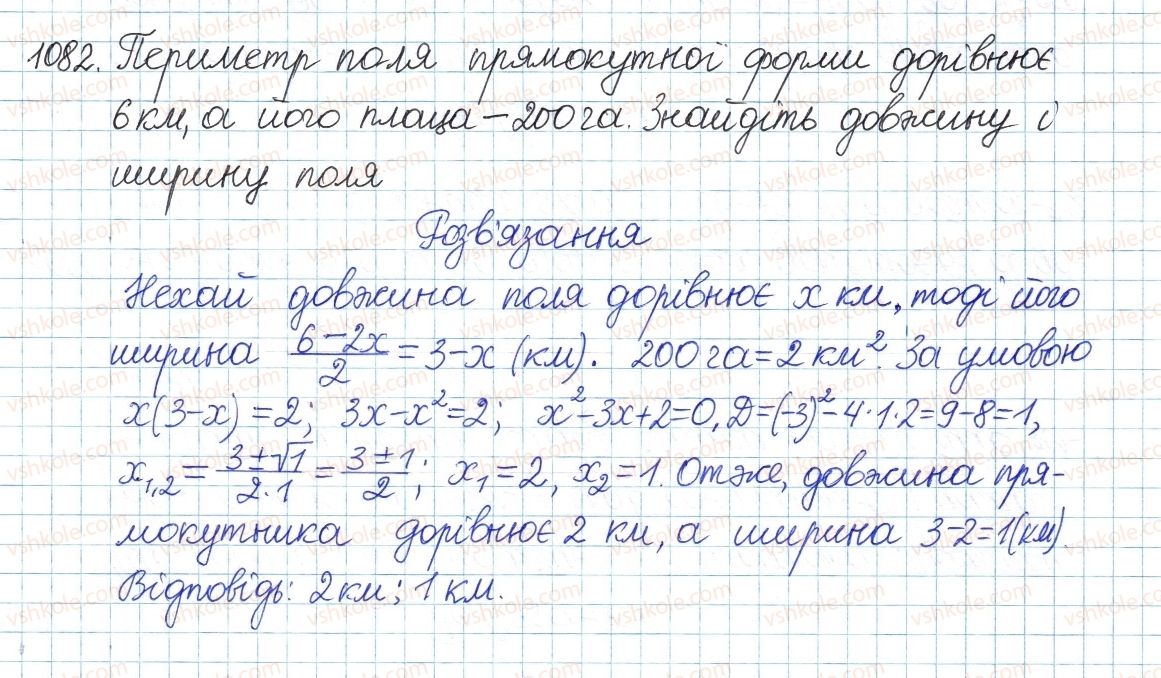 1082. Периметр поля прямокутної форми дорівнює
6 км, а його площа – 200 га. Знайдіть довжину і
ширину поля
Розв'язання
Нехай довжина поля дорівнює x км, тоді його
ширина (6-2x)/2 = 3-x (км). 200 га = 2 км². За умовою
x(3-x) = 2; 3x-x²=2; x²-3x+2=0, Д=(-3)²-4·1·2=9-8=1,
x₁,₂ = (3±√1)/(2·1) = (3±1)/2; x₁=2, x₂=1. Отже, довжина пря-
мокутника дорівнює 2 км, а ширина 3-2=1(км).
Відповідь: 2 км; 1 км.